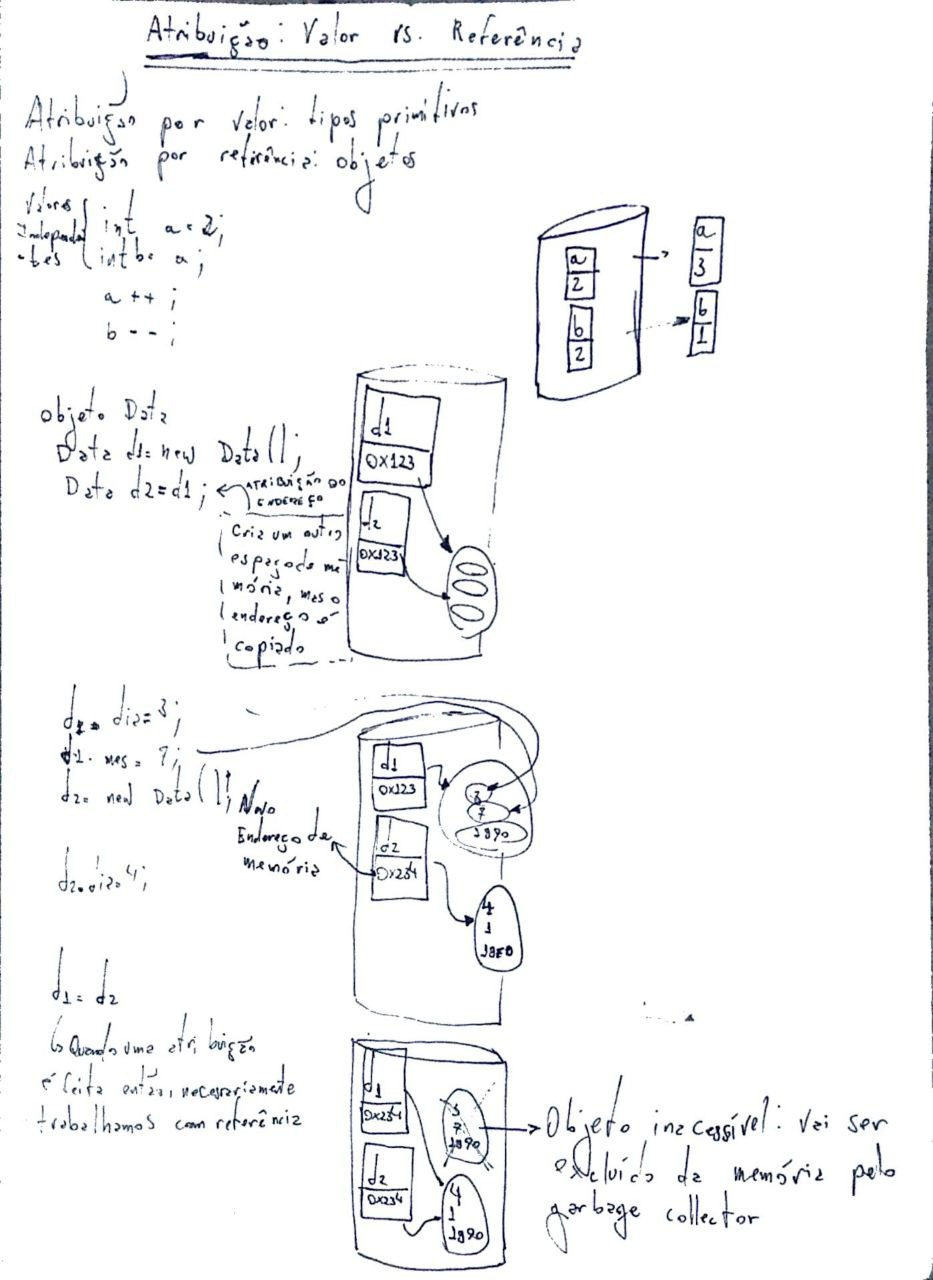 Atribuição: Valor vs. Referência
Atribuição por valor: tipos primitivos
Atribuição por referência: objetos
Valores
Independen
-tes
int a = 2;
int b = a;
a ++ ;
b -- ;
a
2
b
2
a
3
b
1
objeto Data
Data d1 = new Data();
Data d2 = d1;
ATRIBUIÇÃO DO
ENDEREÇO
Cria um outro
espaço de me
mória, mas o
endereço é
copiado
d1
0X123
d2
0X123
dia = 3;
d1. mes = 7;
d2 = new Data();
Novo
Endereço de
memória
d2.dia = 4;
d1
0X123
d2
0X234
3
7
1890
4
1
d1 = d2
↳ Quando uma atribuição
é feita então, necessariamente
trabalhamos com referência
d1
0X234
d2
0X234
3
7
1890
4
1
1890
Objeto inacessível: vai ser
excluído da memória pelo
garbage collector